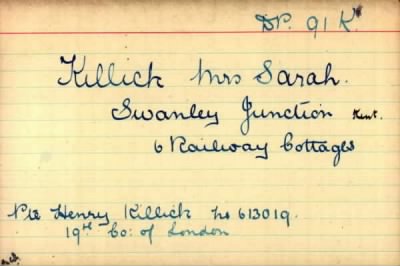 DP. 91 K
Killick Mrs Sarah.
Swanley Junction Kent.
6 Railway Cottages
Pte Henry Killick No 613019.
19th Co: of London